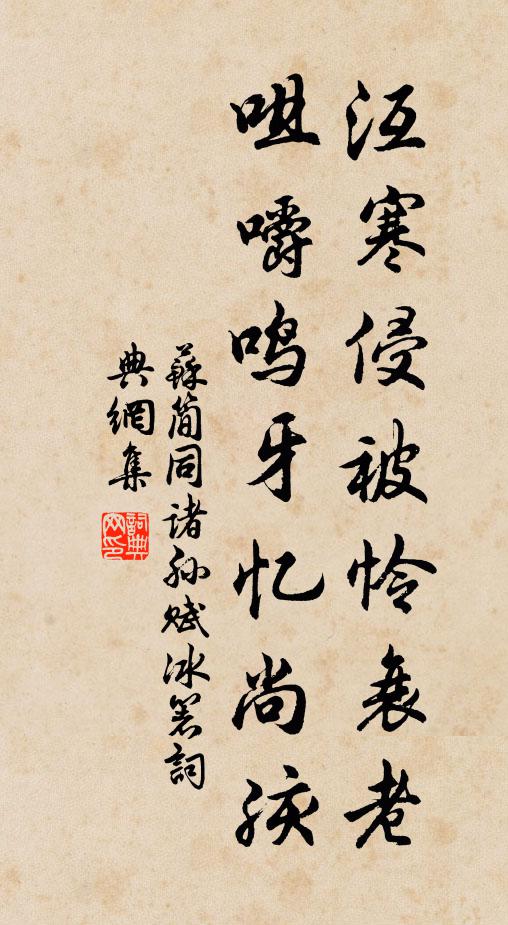 沍寒侵被怜衰老
咀嚼鸣牙忆尚孩
蘇簡同诸孙赋冰箸詞
典網集
詞典網印